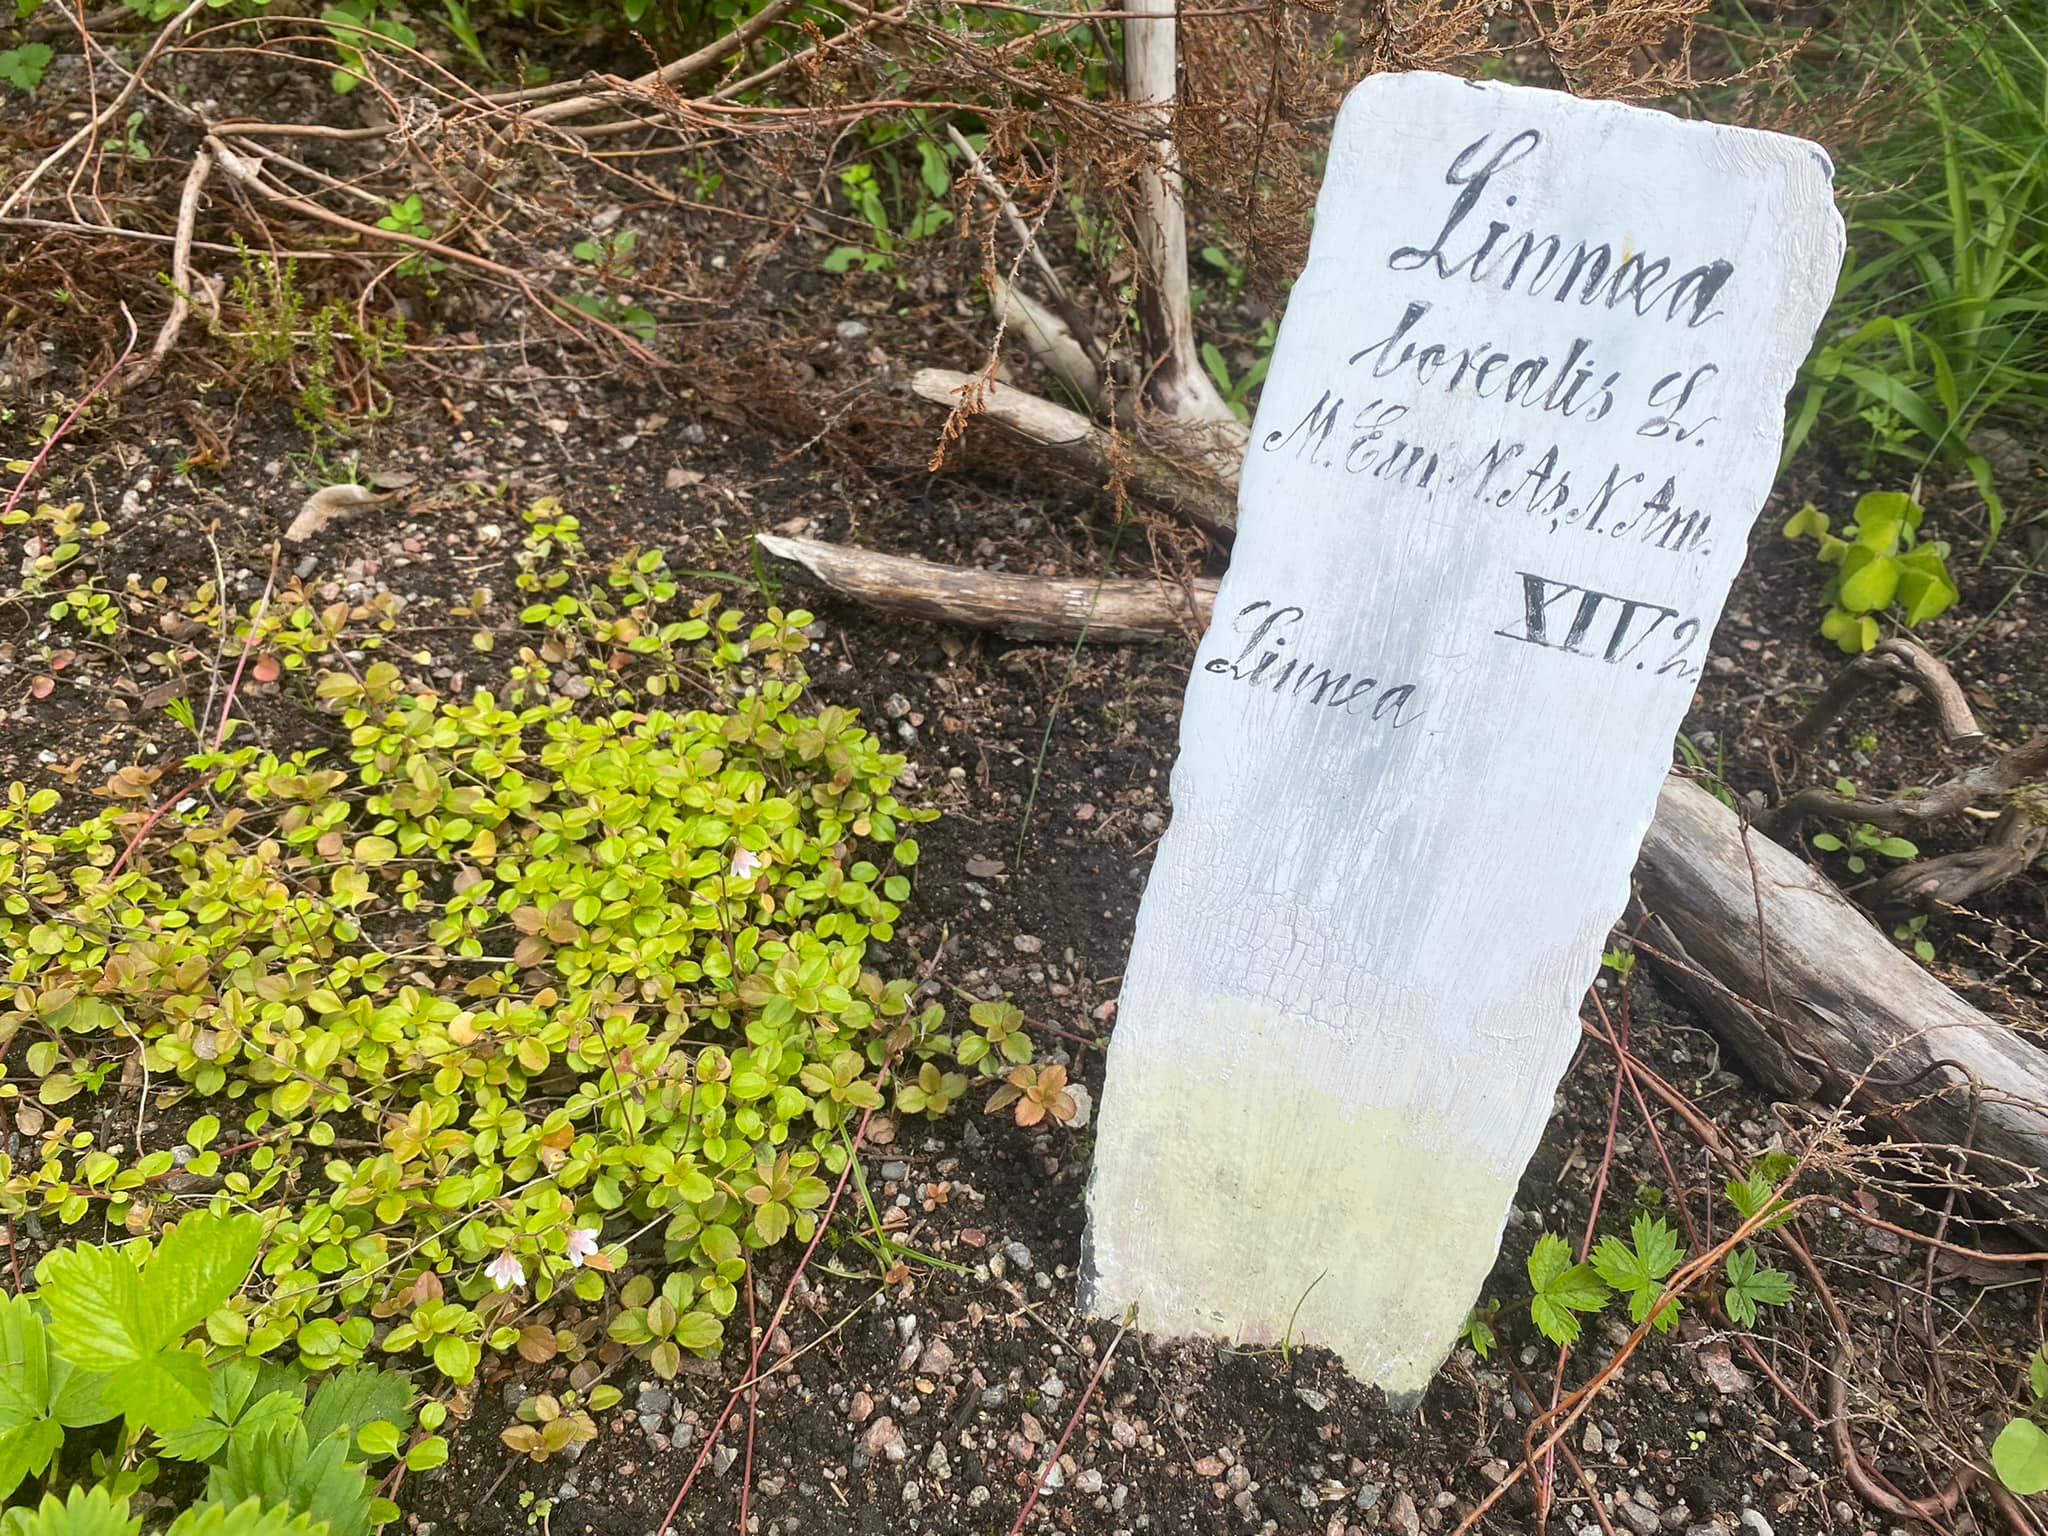 Linnæa
borealis L.
M. Eur, N. As, N. Am.
XIV. 2.
Linnea